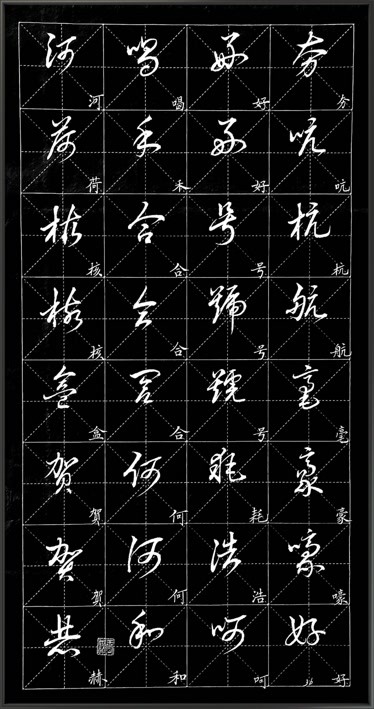 夯 夯 吭 吭 杭 杭 航 航 毫 毫 豪 豪 嚎 嚎 好 好 36
好 好 好 好 号 号 號 号 號 号 耗 耗 浩 浩 呵 呵
喝 喝 禾 禾 合 合 合 合 合 何 何 何 何 和 和
河 河 荷 荷 核 核 核 核 盒 盒 贺 賀 贺 賀 赫 赫